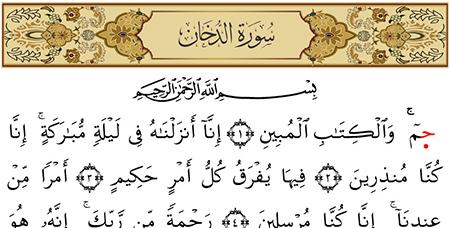 سُورَةُ الدُّخَان
بِسْمِ اللَّهِ الرَّحْمَٰنِ الرَّحِيمِ
جمٓ ۚ وَالْكِتَابِ الْمُبِينِ ﴿١﴾ إِنَّآ أَنزَلْنَاهُ فِى لَيْلَةٍ مُّبَارَكَةٍ ۚ إِنَّا
كُنَّا مُنذِرِينَ ﴿٢﴾ فِيهَا يُفْرَقُ كُلُّ أَمْرٍ حَكِيمٍ ﴿٣﴾ أَمْرًا مِّنْ
عِندِنَآ ۚ إِنَّا كُنَّا مُرْسِلِينَ ﴿٤﴾ رَحْمَةً مِّن رَّبِّكَ ۚ إِنَّهُ هُوَ